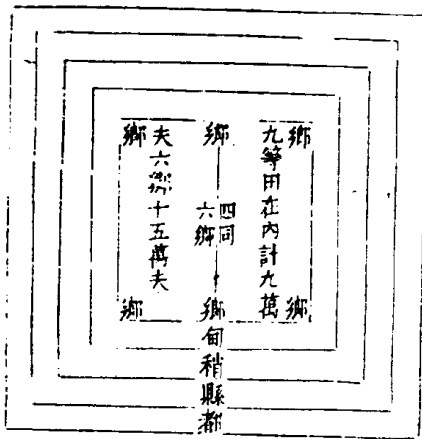 鄉
九等田在內計九萬
鄉
鄉
四同
六鄉
鄉甸稍縣都
鄉
夫六鄉十五萬夫
鄉